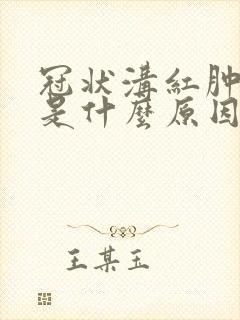 冠状溝紅肿
是什麼原因
王某玉